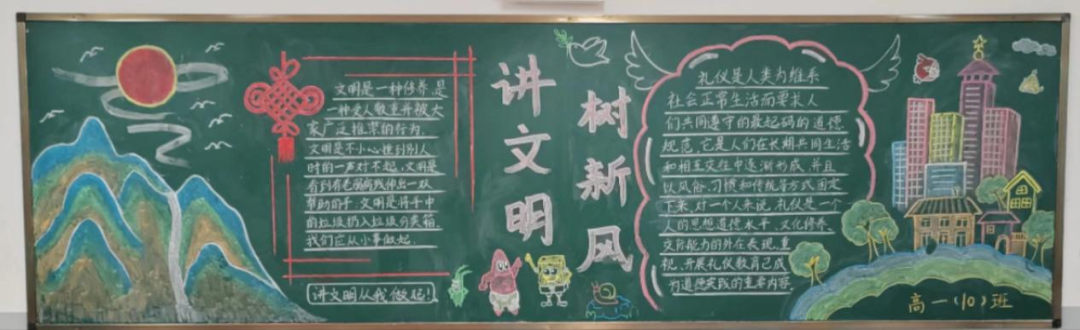 讲文明
树新风
文明是一种修养,是
一种受人敬重并被大
家广泛推崇的行为.
文明是不小心撞到别人
时的一声对不起,文明是
看到有老弱病残伸出一双
帮助的手.文明是将手中
的垃圾扔入垃圾分类箱.
我们应从小事做起.
讲文明从我做起!
礼仪是人类为维系
社会正常生活而要求人
们共同遵守的最起码的道德
规范.它是人们在长期共同生活
和相互交往中逐渐形成,并且
以风俗、习惯和传统等方式固定
下来,对一个人来说,礼仪是一个
人的思想道德水平,文化修养,
交际能力的外在表现,重
视、开展礼仪教育已成
为道德实践的重要内容.
高一(10)班